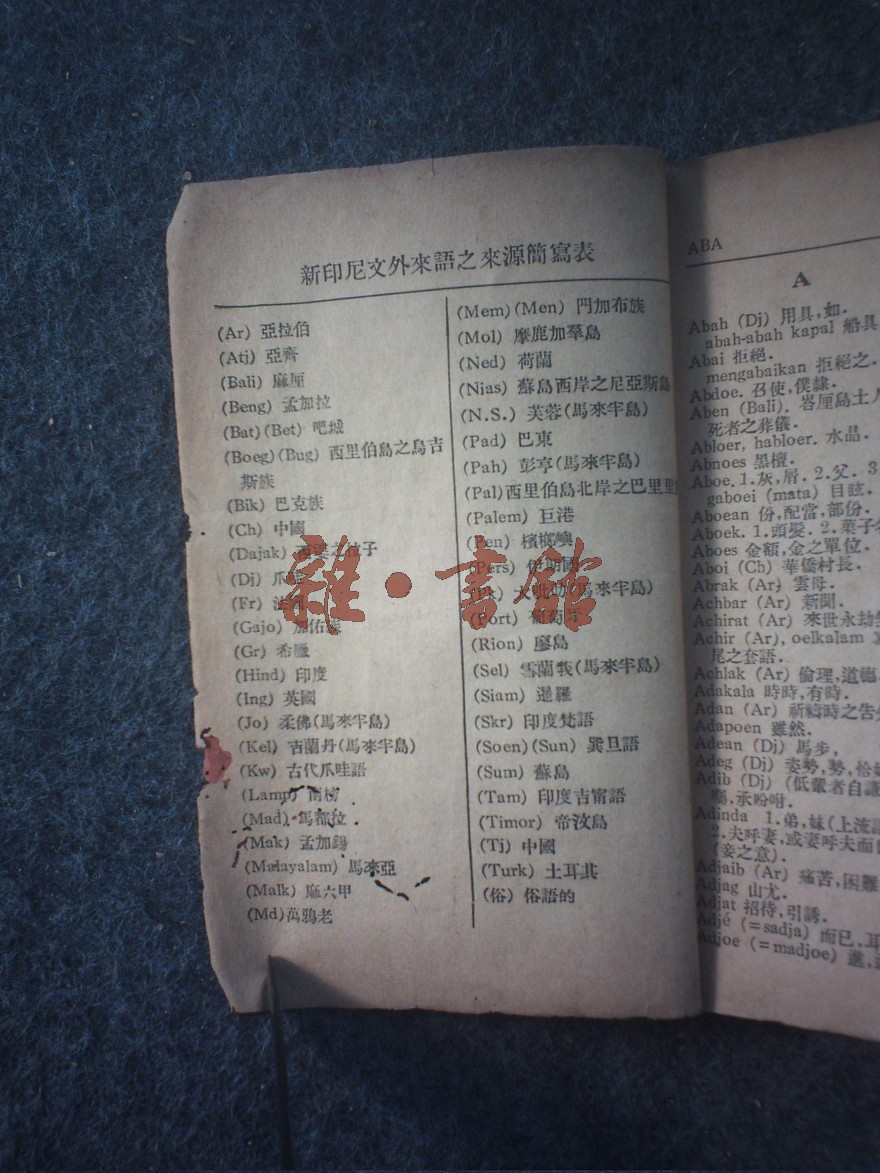 新印尼文外來語之來源簡寫表
(Ar) 亞拉伯
(Atj) 亞齊
(Bali) 麻厘
(Beng) 孟加拉
(Bat)(Bet) 吧城
(Boeg)(Bug) 西里伯島之烏吉
斯族
(Bik) 巴克族
(Ch) 中國
(Dajak) 西婆之拉子
(Dj) 爪
(Fr) 法
(Gajo) 加佑族
(Gr) 希臘
(Hind) 印度
(Ing) 英國
(Jo) 柔佛(馬來半島)
(Kel) 吉蘭丹(馬來半島)
(Kw) 古代爪哇語
(Lamp) 南榜
(Mad) 馬都拉
(Mak) 孟加錫
(Malayalam) 馬來亞
(Malk) 麻六甲
(Md)萬鴉老
(Mem)(Men) 門加布族
(Mol) 摩鹿加羣島
(Ned) 荷蘭
(Nias) 蘇島西岸之尼亞斯島
(N.S.) 芙蓉(馬來半島)
(Pad) 巴東
(Pah) 彭亨(馬來半島)
(Pal)西里伯島北岸之巴里里
(Palem) 巨港
(Pen) 檳榔嶼
(Pers) 伊朗國
(Pk) (馬來半島)
(Port) 葡萄牙
(Rion) 廖島
(Sel) 雪蘭莪(馬來半島)
(Siam) 暹羅
(Skr) 印度梵語
(Soen)(Sun) 巽旦語
(Sum) 蘇島
(Tam) 印度吉甯語
(Timor) 帝汶島
(Tj) 中國
(Turk) 土耳其
(俗) 俗語的
雜·書館
ABA
A
Abah (Dj) 用具,如.
abah-abah kapal 船具
Abai 拒絶.
mengabaikan 拒絕之.
Abdoe. 召使,僕隸.
Aben (Bali). 峇厘島土人
死者之葬儀.
Abloer, habloer. 水晶.
Abnoes 黑檀.
Aboe. 1.灰,屑. 2.父. 3.
gaboei (mata) 目眩.
Aboean 份,配當,部份.
Aboek. 1.頭髮. 2.菓子
Aboes 金額,金之單位.
Aboi (Ch) 華僑村長.
Abrak (Ar) 雲母.
Achbar (Ar) 新聞.
Achirat (Ar) 來世永劫
Achir (Ar), oelkalam
尾之套語.
Achlak (Ar) 倫理,道德.
Adakala 時時,有時.
Adan (Ar) 祈禱時之告
Adapoen 雖然.
Adean (Dj) 馬步,
Adeg (Dj) 姿勢,勢,恰
Adib (Dj) (低輩者自謙
,承吩咐.
Adinda 1.弟,妹(上流
2.夫呼妻,或妻呼夫而
(妾之意).
Adjaib (Ar) 痛苦,困難
Adjag 山尤.
Adjat 招待,引誘.
Adjé (=sadja) 而已,耳
Adjoe (=madjoe) 進,